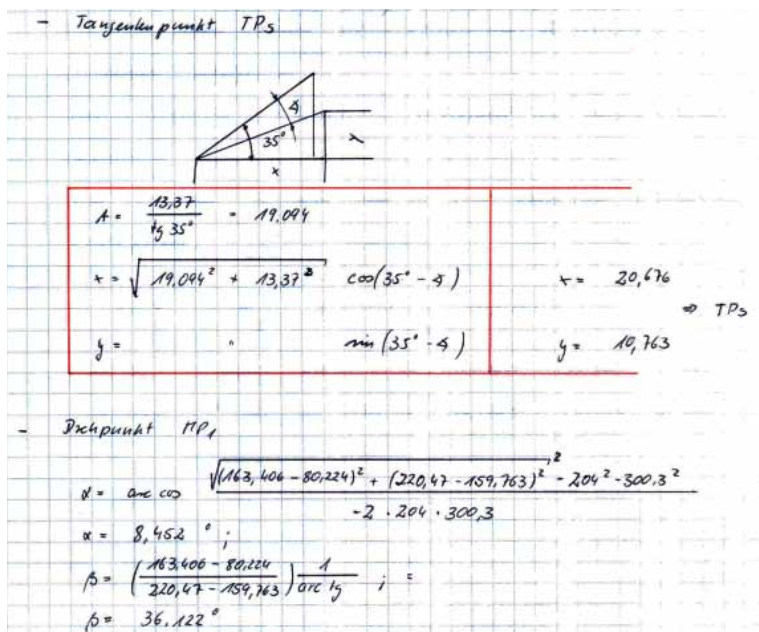 - Tangentenpunkt TP5
∢
35°
y
x
A = 13,37 / tg 35° = 19.094
x = √(19.094² + 13,37²) cos(35° - ∢) x = 20,676
⇒ TP5
y = " sin(35° - ∢) y = 10,763
- Drehpunkt MP1
α = arc cos (√((163,406 - 80,224)² + (220,47 - 159,763)²)² - 204² - 300,3²) / (-2 · 204 · 300,3)
α = 8,452 ° ;
β = ((163,406 - 80,224) / (220,47 - 159,763)) 1 / arc tg ; =
β = 36,122°